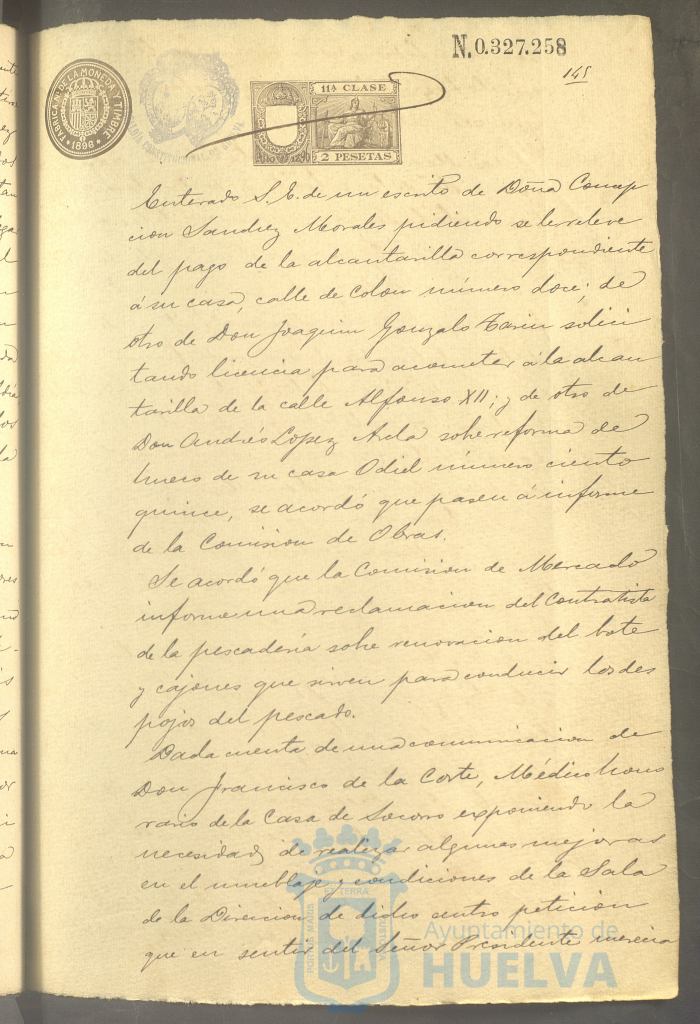 N.0.327.258
145
FABRICA N. DE LA MONEDA Y TIMBRE
1898
11ª CLASE
2 PESETAS
Enterado S. E. de un escrito de Doña Concep
cion Sanchez Morales pidiendo se le releve
del pago de la alcantarilla correspondiente
á su casa, calle de Colon número doce; de
otro de Don Joaquin Gonzalo Tarin solici
tando licencia para acometer á la alcan
tarilla de la calle Alfonso XII; y de otro de
Don Andrés Lopez sobre reforma de
hueco de su casa Odiel número ciento
quince, se acordó que pasen á informe
de la Comision de Obras.
Se acordó que la Comision de Mercado
informe una reclamacion del Contratista
de la pescaderia sobre renovacion del bote
y cajones que sirven para conducir los des
pojos del pescado.
Dada cuenta de una comunicacion de
Don Francisco de la Corte, Médico hono
rario de la Casa de Socorro exponiendo la
necesidad de realizar algunas mejoras
en el mueblaje y condiciones de la Sala
de la Direccion de dicho centro peticion
que en sentir del Señor Presidente merecia
PORTUS MARIS ET TERRÆ CUSTODIA
Ayuntamiento de
HUELVA